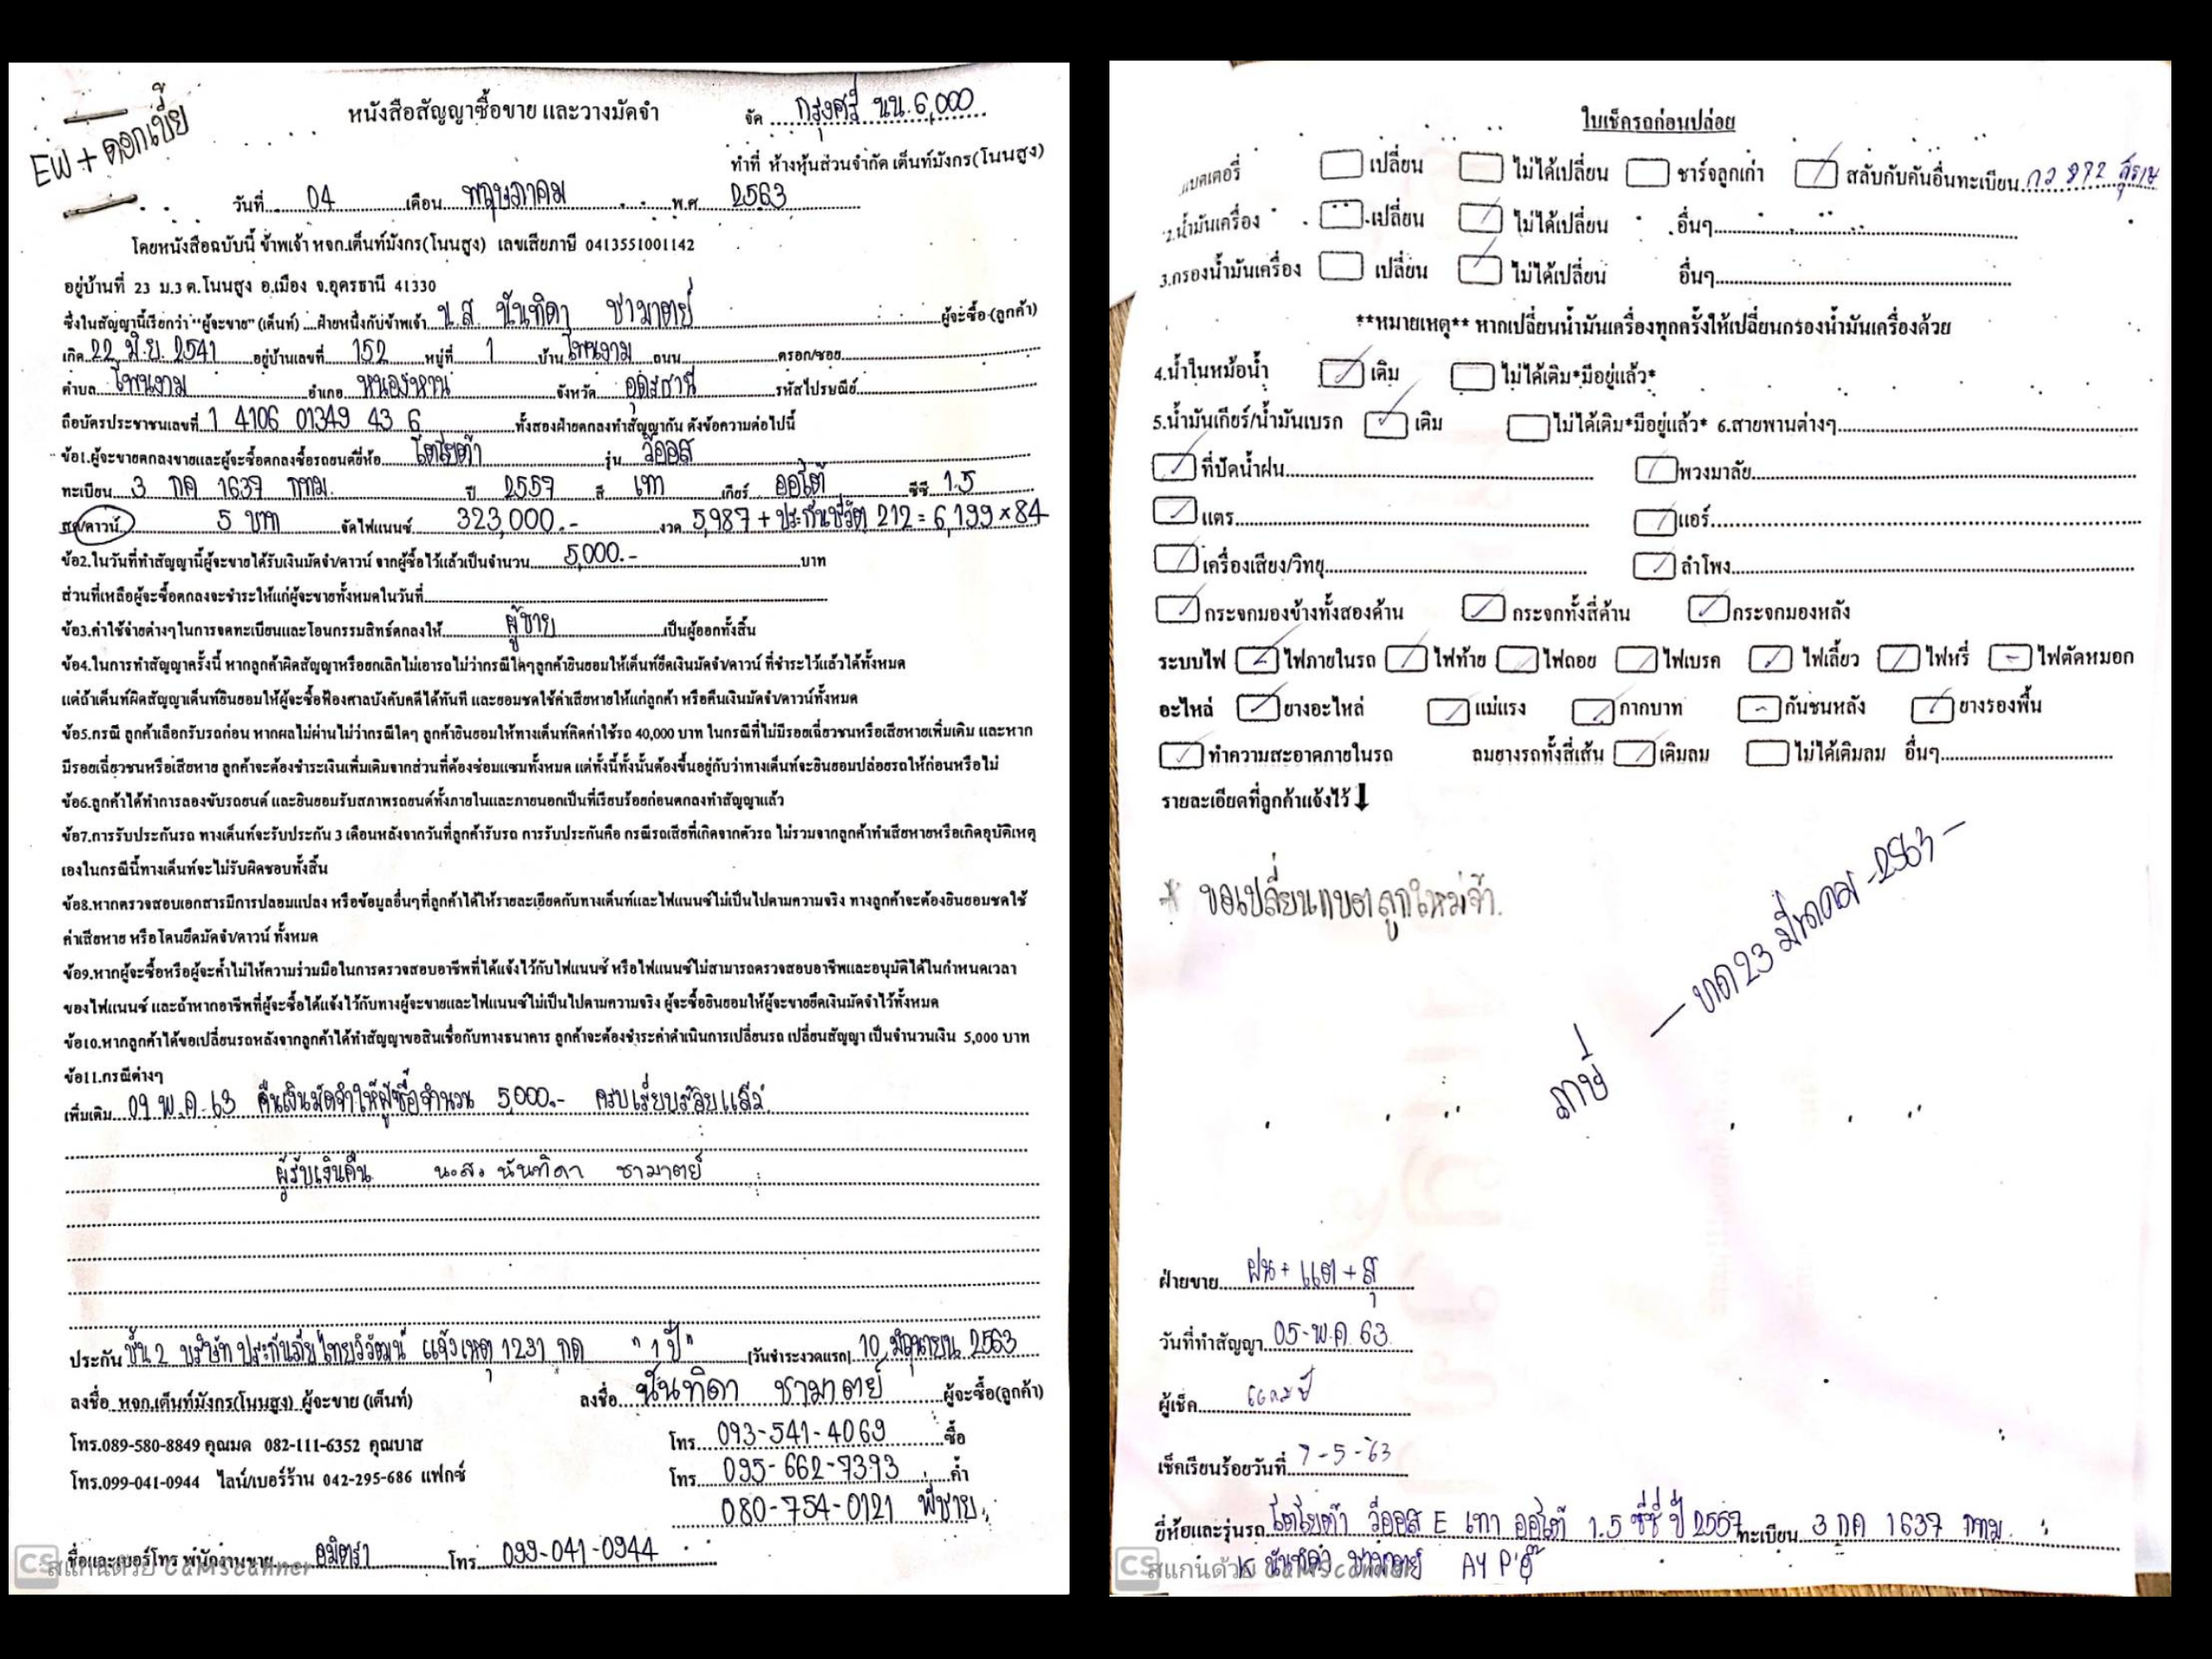 EW + ดอกเบี้ย
หนังสือสัญญาซื้อขาย และวางมัดจำ
จัด กรุงศรี นน.6,000
ทำที่ ห้างหุ้นส่วนจำกัด เต็นท์มังกร(โนนสูง)
วันที่ 04 เดือน พฤษภาคม พ.ศ 2563
โดยหนังสือฉบับนี้ ข้าพเจ้า หจก.เต็นท์มังกร(โนนสูง) เลขเสียภาษี 0413551001142
อยู่บ้านที่ 23 ม.3 ต.โนนสูง อ.เมือง จ.อุดรธานี 41330
ซึ่งในสัญญานี้เรียกว่า "ผู้จะขาย" (เต็นท์) ฝ่ายหนึ่งกับข้าพเจ้า น.ส. นันทิดา ชามาตย์ ผู้จะซื้อ(ลูกค้า)
เกิด 22 มิ.ย. 2541 อยู่บ้านเลขที่ 152 หมู่ที่ 1 บ้าน โพนงาม ถนน ตรอก/ซอย
ตำบล โพนงาม อำเภอ หนองหาน จังหวัด อุดรธานี รหัสไปรษณีย์
ถือบัตรประชาชนเลขที่ 1 4106 01349 43 6 ทั้งสองฝ่ายตกลงทำสัญญากัน ดังข้อความต่อไปนี้
ข้อ1.ผู้จะขายตกลงขายและผู้จะซื้อตกลงซื้อรถยนต์ยี่ห้อ โตโยต้า รุ่น วีออส
ทะเบียน 3 กค 1637 กทม. ปี 2557 สี เทา เกียร์ ออโต้ ซีซี 1.5
สด/ดาวน์ 5 บาท จัดไฟแนนซ์ 323,000.- งวด 5,987 + ประกันชีวิต 212 = 6,199 × 84
ข้อ2.ในวันที่ทำสัญญานี้ผู้จะขายได้รับเงินมัดจำ/ดาวน์ จากผู้ซื้อไว้แล้วเป็นจำนวน 5,000.- บาท
ส่วนที่เหลือผู้จะซื้อตกลงจะชำระให้แก่ผู้จะขายทั้งหมดในวันที่
ข้อ3.ค่าใช้จ่ายต่างๆในการจดทะเบียนและโอนกรรมสิทธ์ตกลงให้ ผู้ขาย เป็นผู้ออกทั้งสิ้น
ข้อ4.ในการทำสัญญาครั้งนี้ หากลูกค้าผิดสัญญาหรือยกเลิกไม่เอารถไม่ว่ากรณีใดๆลูกค้ายินยอมให้เต็นท์ยึดเงินมัดจำ/ดาวน์ ที่ชำระไว้แล้วได้ทั้งหมด
แต่ถ้าเต็นท์ผิดสัญญาเต็นท์ยินยอมให้ผู้จะซื้อฟ้องศาลบังคับคดีได้ทันที และยอมชดใช้ค่าเสียหายให้แก่ลูกค้า หรือคืนเงินมัดจำ/ดาวน์ทั้งหมด
ข้อ5.กรณี ลูกค้าเลือกรับรถก่อน หากผลไม่ผ่านไม่ว่ากรณีใดๆ ลูกค้ายินยอมให้ทางเต็นท์คิดค่าใช้รถ 40,000 บาท ในกรณีที่ไม่มีรอยเฉี่ยวชนหรือเสียหายเพิ่มเติม และหาก
มีรอยเฉี่ยวชนหรือเสียหาย ลูกค้าจะต้องชำระเงินเพิ่มเติมจากส่วนที่ต้องซ่อมแซมทั้งหมด แต่ทั้งนี้ทั้งนั้นต้องขึ้นอยู่กับว่าทางเต็นท์จะยินยอมปล่อยรถให้ก่อนหรือไม่
ข้อ6.ลูกค้าได้ทำการลองขับรถยนต์ และยินยอมรับสภาพรถยนต์ทั้งภายในและภายนอกเป็นที่เรียบร้อยก่อนตกลงทำสัญญาแล้ว
ข้อ7.การรับประกันรถ ทางเต็นท์จะรับประกัน 3 เดือนหลังจากวันที่ลูกค้ารับรถ การรับประกันคือ กรณีรถเสียที่เกิดจากตัวรถ ไม่รวมจากลูกค้าทำเสียหายหรือเกิดอุบัติเหตุ
เองในกรณีนี้ทางเต็นท์จะไม่รับผิดชอบทั้งสิ้น
ข้อ8.หากตรวจสอบเอกสารมีการปลอมแปลง หรือข้อมูลอื่นๆที่ลูกค้าได้ให้รายละเอียดกับทางเต็นท์และไฟแนนซ์ไม่เป็นไปตามความจริง ทางลูกค้าจะต้องยินยอมชดใช้
ค่าเสียหาย หรือโดนยึดมัดจำ/ดาวน์ ทั้งหมด
ข้อ9.หากผู้จะซื้อหรือผู้จะค้ำไม่ให้ความร่วมมือในการตรวจสอบอาชีพที่ได้แจ้งไว้กับไฟแนนซ์ หรือไฟแนนซ์ไม่สามารถตรวจสอบอาชีพและอนุมัติได้ในกำหนดเวลา
ของไฟแนนซ์ และถ้าหากอาชีพที่ผู้จะซื้อได้แจ้งไว้กับทางผู้จะขายและไฟแนนซ์ไม่เป็นไปตามความจริง ผู้จะซื้อยินยอมให้ผู้จะขายยึดเงินมัดจำไว้ทั้งหมด
ข้อ10.หากลูกค้าได้ขอเปลี่ยนรถหลังจากลูกค้าได้ทำสัญญาขอสินเชื่อกับทางธนาคาร ลูกค้าจะต้องชำระค่าดำเนินการเปลี่ยนรถ เปลี่ยนสัญญา เป็นจำนวนเงิน 5,000 บาท
ข้อ11.กรณีต่างๆ
เพิ่มเติม 09 พ.ค. 63 คืนเงินมัดจำให้ผู้ซื้อจำนวน 5,000.- ครบเรียบร้อยแล้ว
ผู้รับเงินคืน น.ส. นันทิดา ชามาตย์
ประกัน ชั้น 2 บริษัท ประกันภัยไทยวิวัฒน์ แจ้งเหตุ 1231 กด "1 ปี" [วันชำระงวดแรก] 10 มิถุนายน 2563
ลงชื่อ หจก.เต็นท์มังกร(โนนสูง) ผู้จะขาย (เต็นท์) ลงชื่อ นันทิดา ชามาตย์ ผู้จะซื้อ(ลูกค้า)
โทร.089-580-8849 คุณมด 082-111-6352 คุณบาส โทร. 093-541-4069 ซื้อ
โทร.099-041-0944 ไลน์/เบอร์ร้าน 042-295-686 แฟกซ์ โทร. 095-662-7393 ค้ำ
080-754-0121 พี่ชาย
ชื่อและเบอร์โทร พนักงานขาย อมิตรา โทร. 099-041-0944
CS สแกนด้วย CamScanner
ใบเช็ครถก่อนปล่อย
แบตเตอรี่ เปลี่ยน ไม่ได้เปลี่ยน ชาร์จลูกเก่า สลับกับคันอื่นทะเบียน
2.น้ำมันเครื่อง เปลี่ยน ไม่ได้เปลี่ยน อื่นๆ
3.กรองน้ำมันเครื่อง เปลี่ยน ไม่ได้เปลี่ยน อื่นๆ
**หมายเหตุ** หากเปลี่ยนน้ำมันเครื่องทุกครั้งให้เปลี่ยนกรองน้ำมันเครื่องด้วย
4.น้ำในหม้อน้ำ เติม ไม่ได้เติม*มีอยู่แล้ว*
5.น้ำมันเกียร์/น้ำมันเบรค เติม ไม่ได้เติม*มีอยู่แล้ว* 6.สายพานต่างๆ
ที่ปัดน้ำฝน พวงมาลัย
แตร แอร์
เครื่องเสียง/วิทยุ ลำโพง
กระจกมองข้างทั้งสองด้าน กระจกทั้งสี่ด้าน กระจกมองหลัง
ระบบไฟ ไฟภายในรถ ไฟท้าย ไฟถอย ไฟเบรค ไฟเลี้ยว ไฟหรี่ ไฟตัดหมอก
อะไหล่ ยางอะไหล่ แม่แรง กากบาท กันชนหลัง ยางรองพื้น
ทำความสะอาดภายในรถ ลมยางรถทั้งสี่เส้น เติมลม ไม่ได้เติมลม อื่นๆ
รายละเอียดที่ลูกค้าแจ้งไว้
* ขอเปลี่ยนแบตลูกใหม่จ้า
ภาษี - ขาด 23 มีนาคม -2563 -
ฝ่ายขาย ฝน + แต + สุ
วันที่ทำสัญญา 05-พ.ค. 63
ผู้เช็ค
เช็คเรียบร้อยวันที่ 7-5-63
ยี่ห้อและรุ่นรถ โตโยต้า วีออส E เทา ออโต้ 1.5 ซีซี ปี 2557 ทะเบียน 3 กค 1637 กทม.
K นันทิดา ชามาตย์ AY P'อู๊
CS สแกนด้วย CamScanner